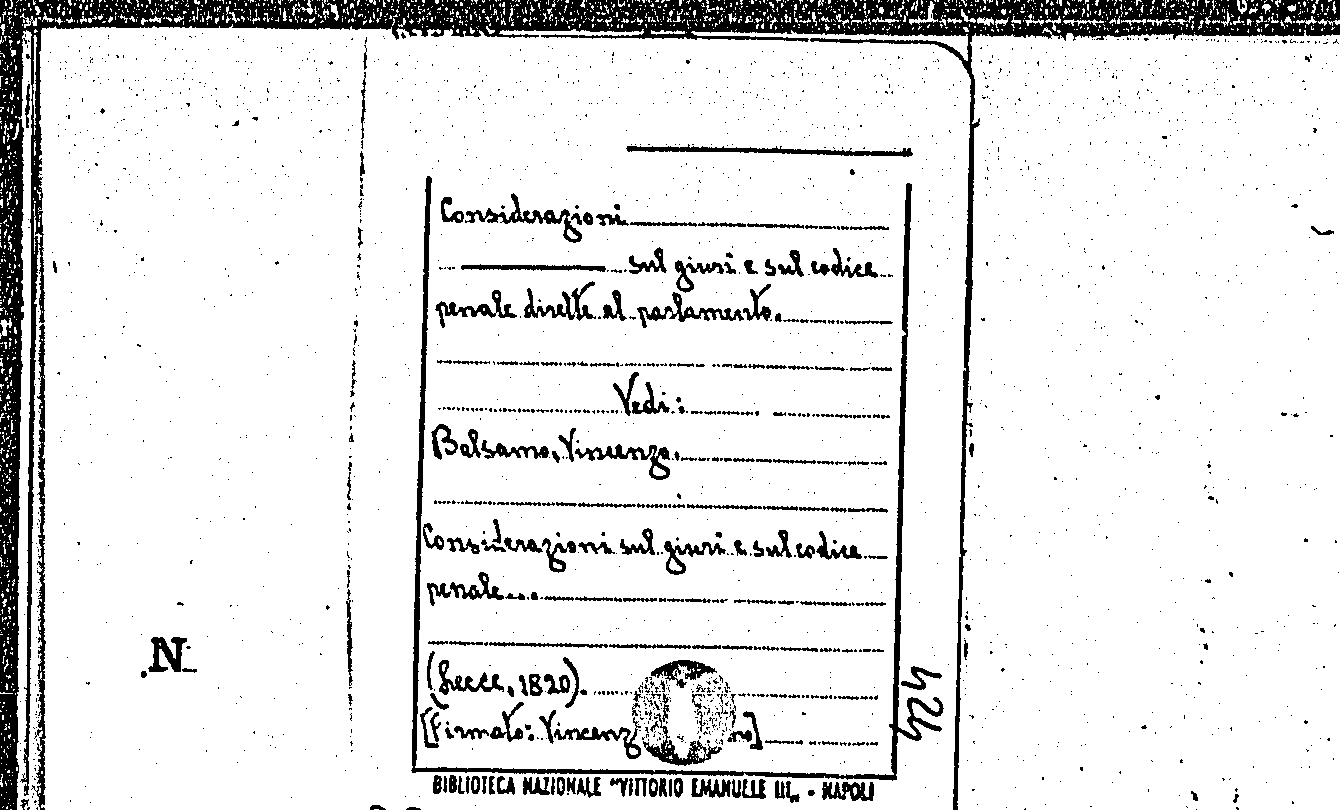 Considerazioni
sul giurì e sul codice
penale dirette al parlamento.
Vedi:
Balsamo, Vincenzo.
Considerazioni sul giurì e sul codice
penale...
(Lecce, 1820).
[Firmato: Vincenz no]
BIBLIOTECA NAZIONALE "VITTORIO EMANUELE III„ - NAPOLI
N
424